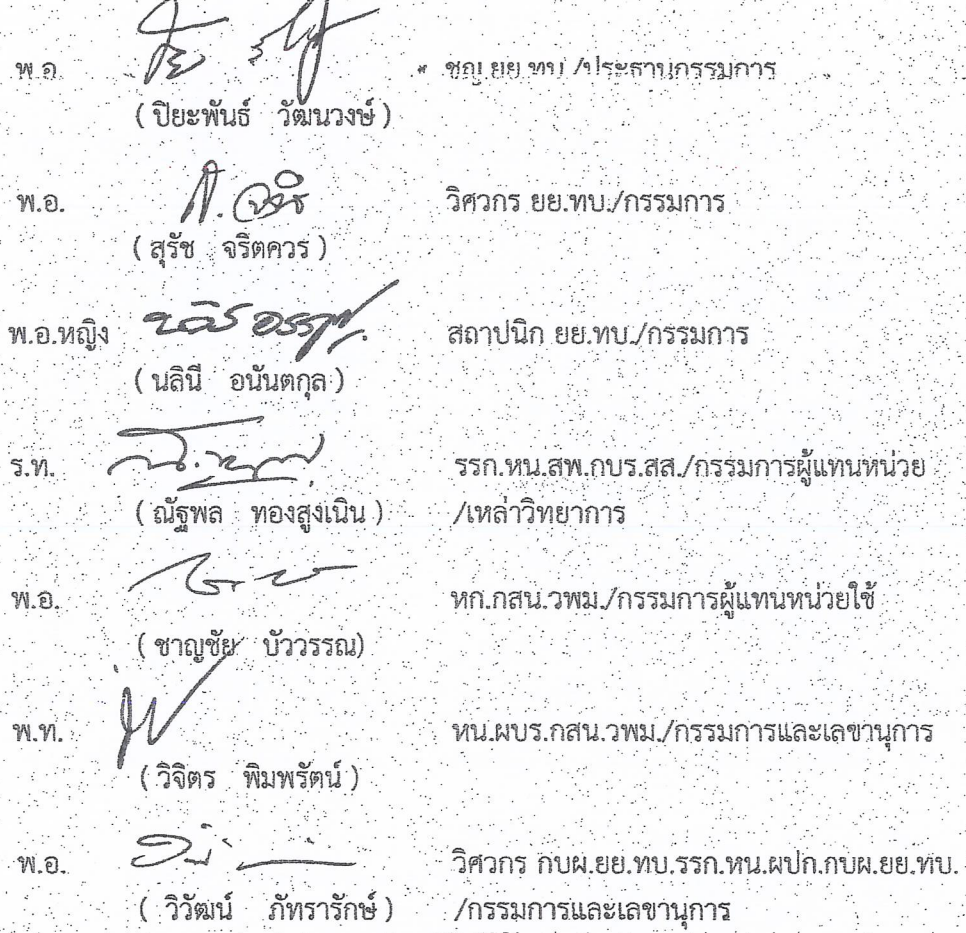 พ.อ. ชญ.ยย.ทบ./ประธานกรรมการ
( ปิยะพันธ์ วัฒนวงษ์ )
พ.อ. วิศวกร ยย.ทบ./กรรมการ
( สุรัช จริตควร )
พ.อ.หญิง สถาปนิก ยย.ทบ./กรรมการ
( นลินี อนันตกุล )
ร.ท. รรก.หน.สพ.กบร.สส./กรรมการผู้แทนหน่วย
( ณัฐพล ทองสูงเนิน ) /เหล่าวิทยาการ
พ.อ. หก.กสน.วพม./กรรมการผู้แทนหน่วยใช้
( ชาญชัย บัววรรณ)
พ.ท. หน.ผบร.กสน.วพม./กรรมการและเลขานุการ
( วิจิตร พิมพรัตน์ )
พ.อ. วิศวกร กบผ.ยย.ทบ.รรก.หน.ผปก.กบผ.ยย.ทบ.
( วิวัฒน์ ภัทรารักษ์ ) /กรรมการและเลขานุการ